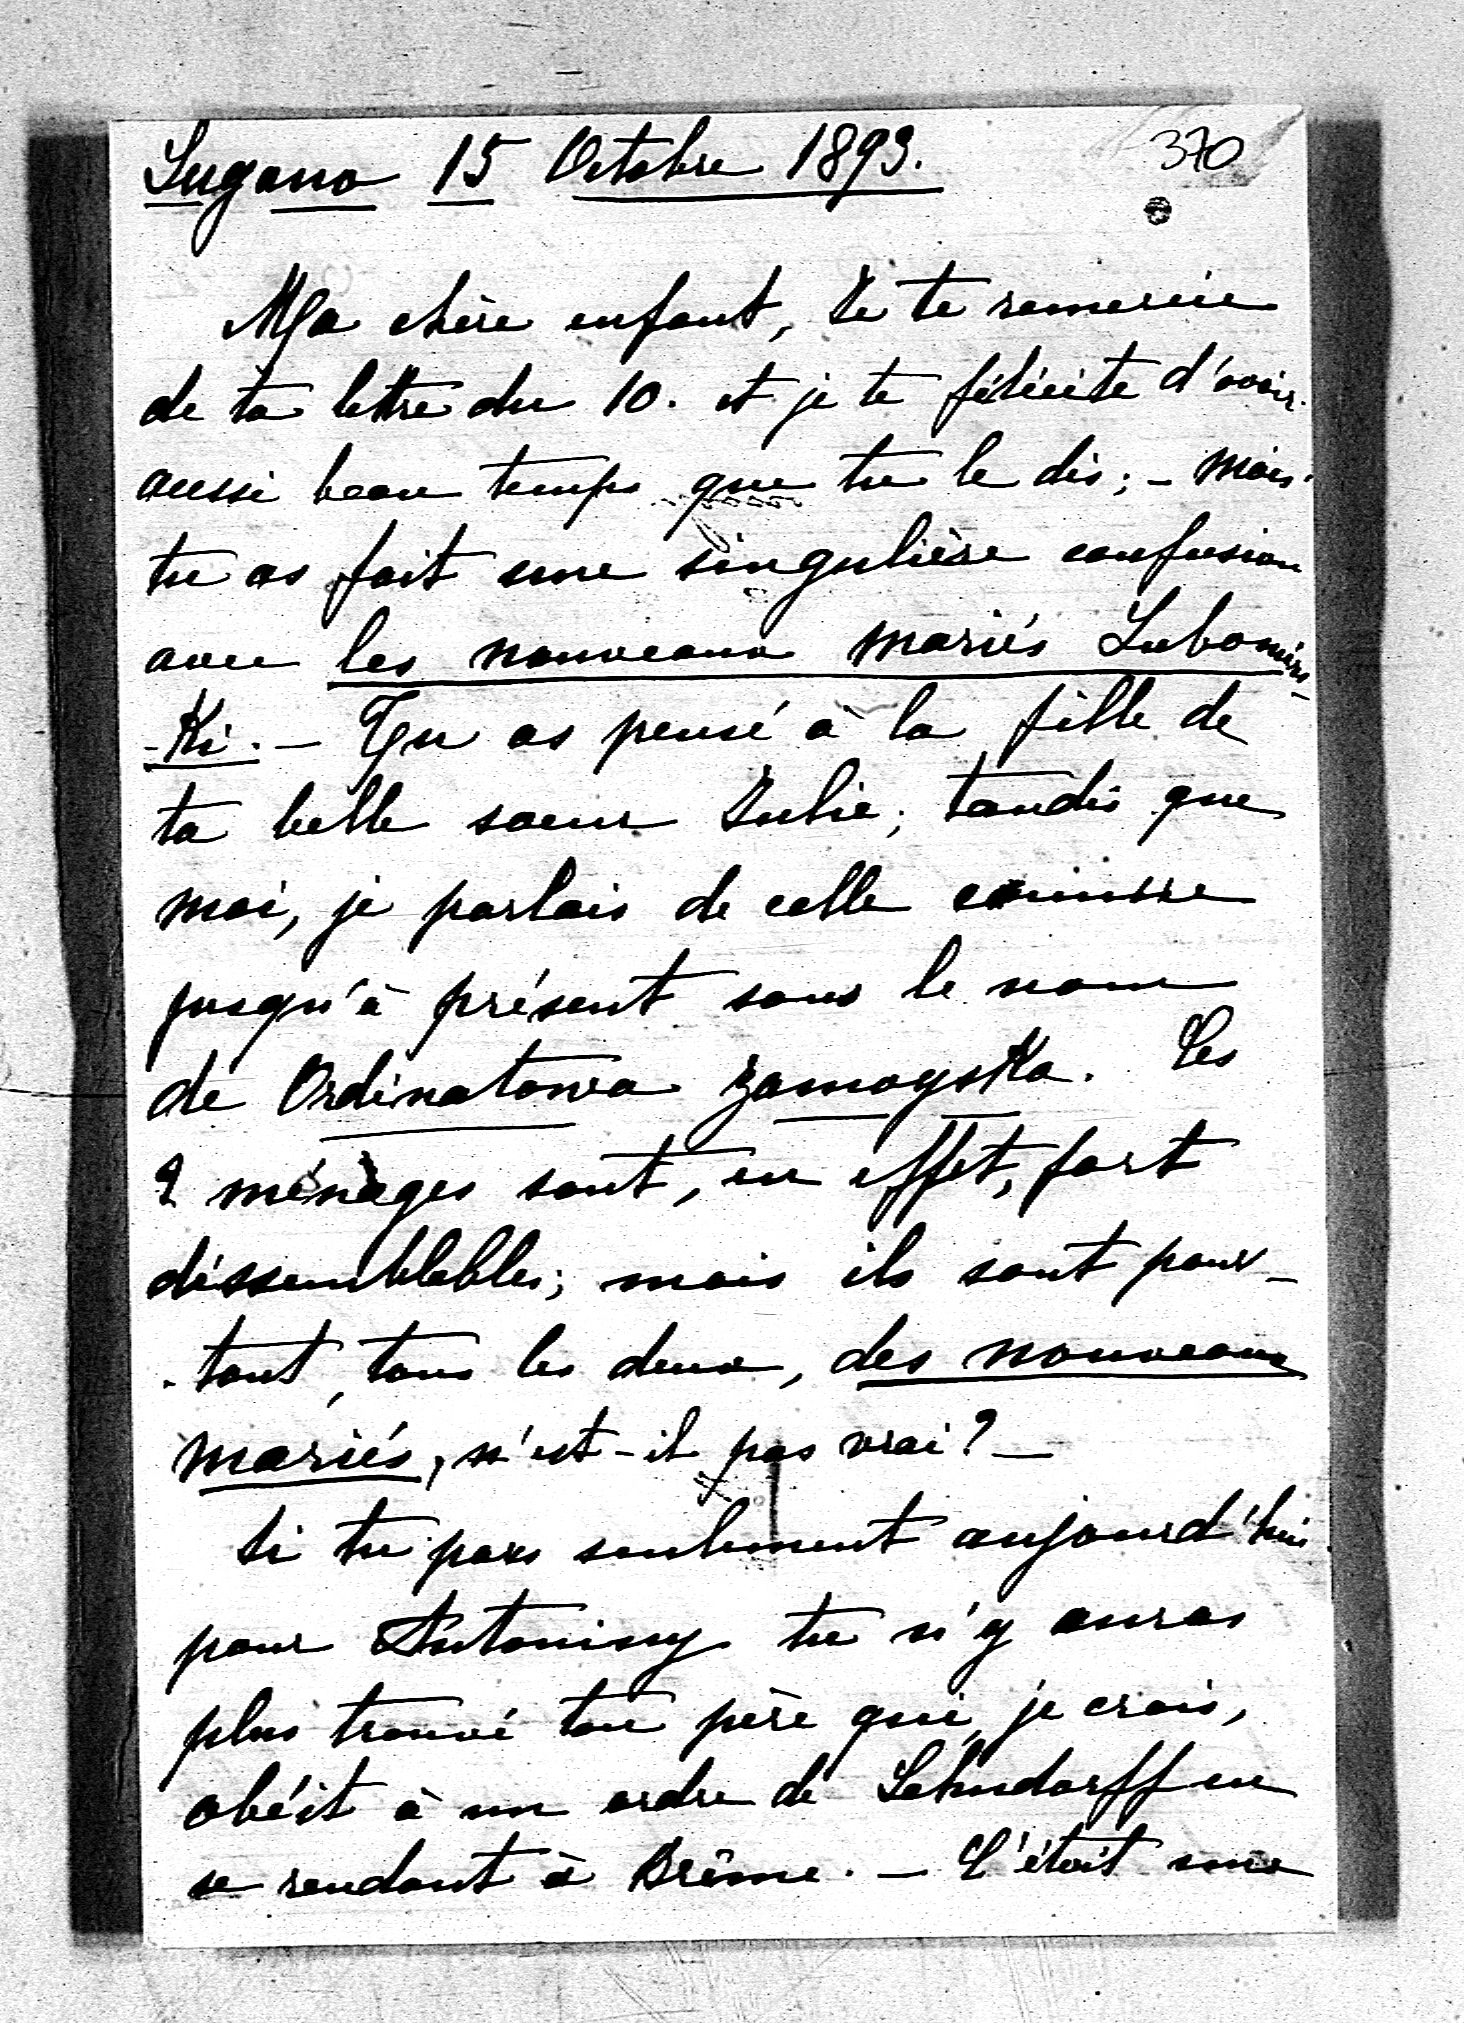 Lugano 15 Octobre 1893. 370
Ma chère enfant, Je te remercie
de ta lettre du 10. et je te félicite d'avoir
aussi beau temps que tu le dis; – mais
tu as fait une singulière confusion
avec les nouveaux mariés Lubomirs-
-Ki. – Tu as pensé à la fille de
ta belle soeur Julie; tandis que
moi, je parlais de celle connue
jusqu'à présent sous le nom
de Ordinatowa Zamoyska. Les
2 ménages sont, en effet, fort
dissemblables; mais ils sont pour-
-tant, tous les deux, des nouveaux
mariés, n'est-il pas vrai? –
Si tu pars seulement aujourd'hui
pour Antoniny tu n'y auras
plus trouvé ton père qui, je crois,
obéit à un ordre de Lehndorff en
se rendant à Brême. – C'était une